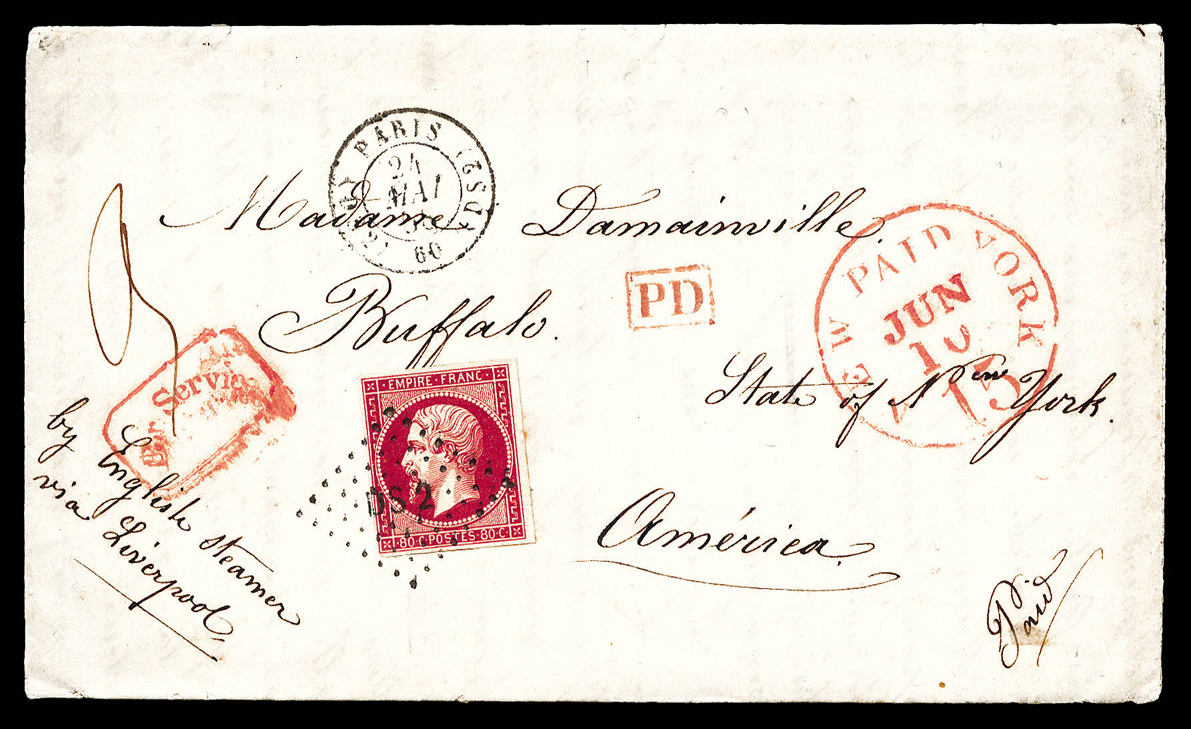 PARIS (DS2)
24
MAI
60
Madame Damainville.
Buffalo.
PD
NEW PAID YORK
JUN
10
15
State of New York.
América
EMPIRE FRANC.
DS2
80.C. POSTES 80.C.
Service
by English steamer
via Liverpool.
Paid